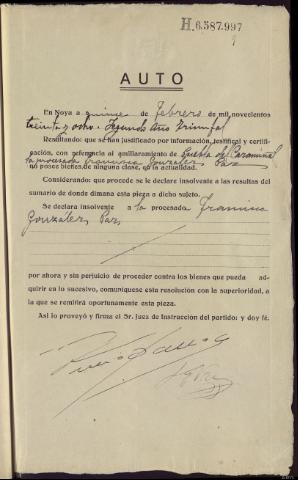 H.6.587.997
AUTO
En Noya a quince de febrero de mil novecientos
treinta y ocho. Segundo Año Triunfal
Resultando: que se han justificado por información, testifical y certifi-
cación, con referencia al amillaramiento de Puebla del Caramiñal
la procesada Francisca González Paz
no posee bienes de ninguna clase, en la actualidad.
Considerando: que procede se le declare insolvente a las resultas del
sumario de donde dimana esta pieza a dicho sujeto.
Se declara insolvente a la procesada Francisca
González Paz
por ahora y sin perjuicio de proceder contra los bienes que pueda adquirir
en lo sucesivo, comuníquese esta resolución con la superioridad, a
la que se remitirá oportunamente esta pieza.
Así lo proveyó y firma el Sr. Juez de Instrucción del partido: y doy fé.